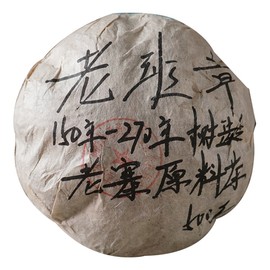 老班章
150年-270年樹齡
老寨原料茶
500克